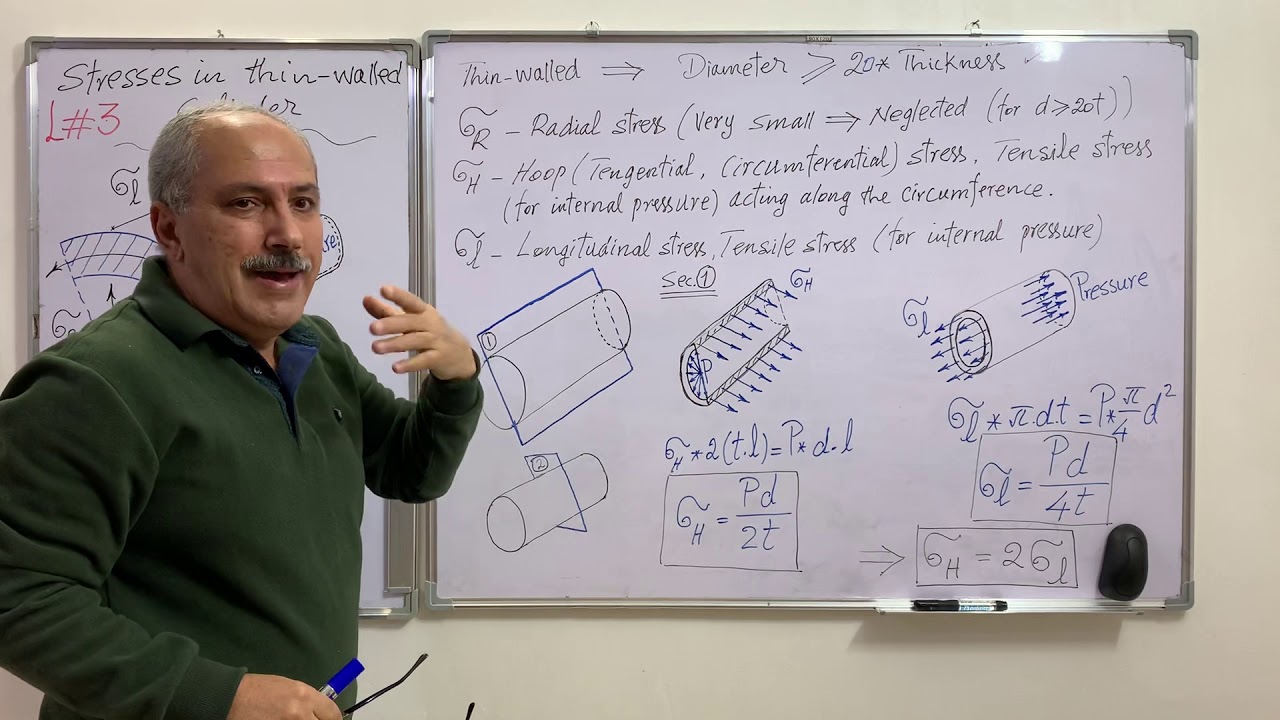 Stresses in thin-walled
L#3
Cylinder
σl
Thin-walled ⇒ Diameter ⩾ 20* Thickness ✓
σR - Radial stress (Very small ⇒ Neglected (for d⩾20t))
σH - Hoop (Tengential, Circumferential) stress, Tensile stress
(for internal pressure) acting along the circumference.
σl - Longitudinal stress, Tensile stress (for internal pressure)
Sec.①
σH
Pressure
σl
1
P
σH * 2(t.l) = P* d.l
σl * π.d.t = P* π/4 d²
2
σH = Pd/2t
σl = Pd/4t
⇒ σH = 2σl